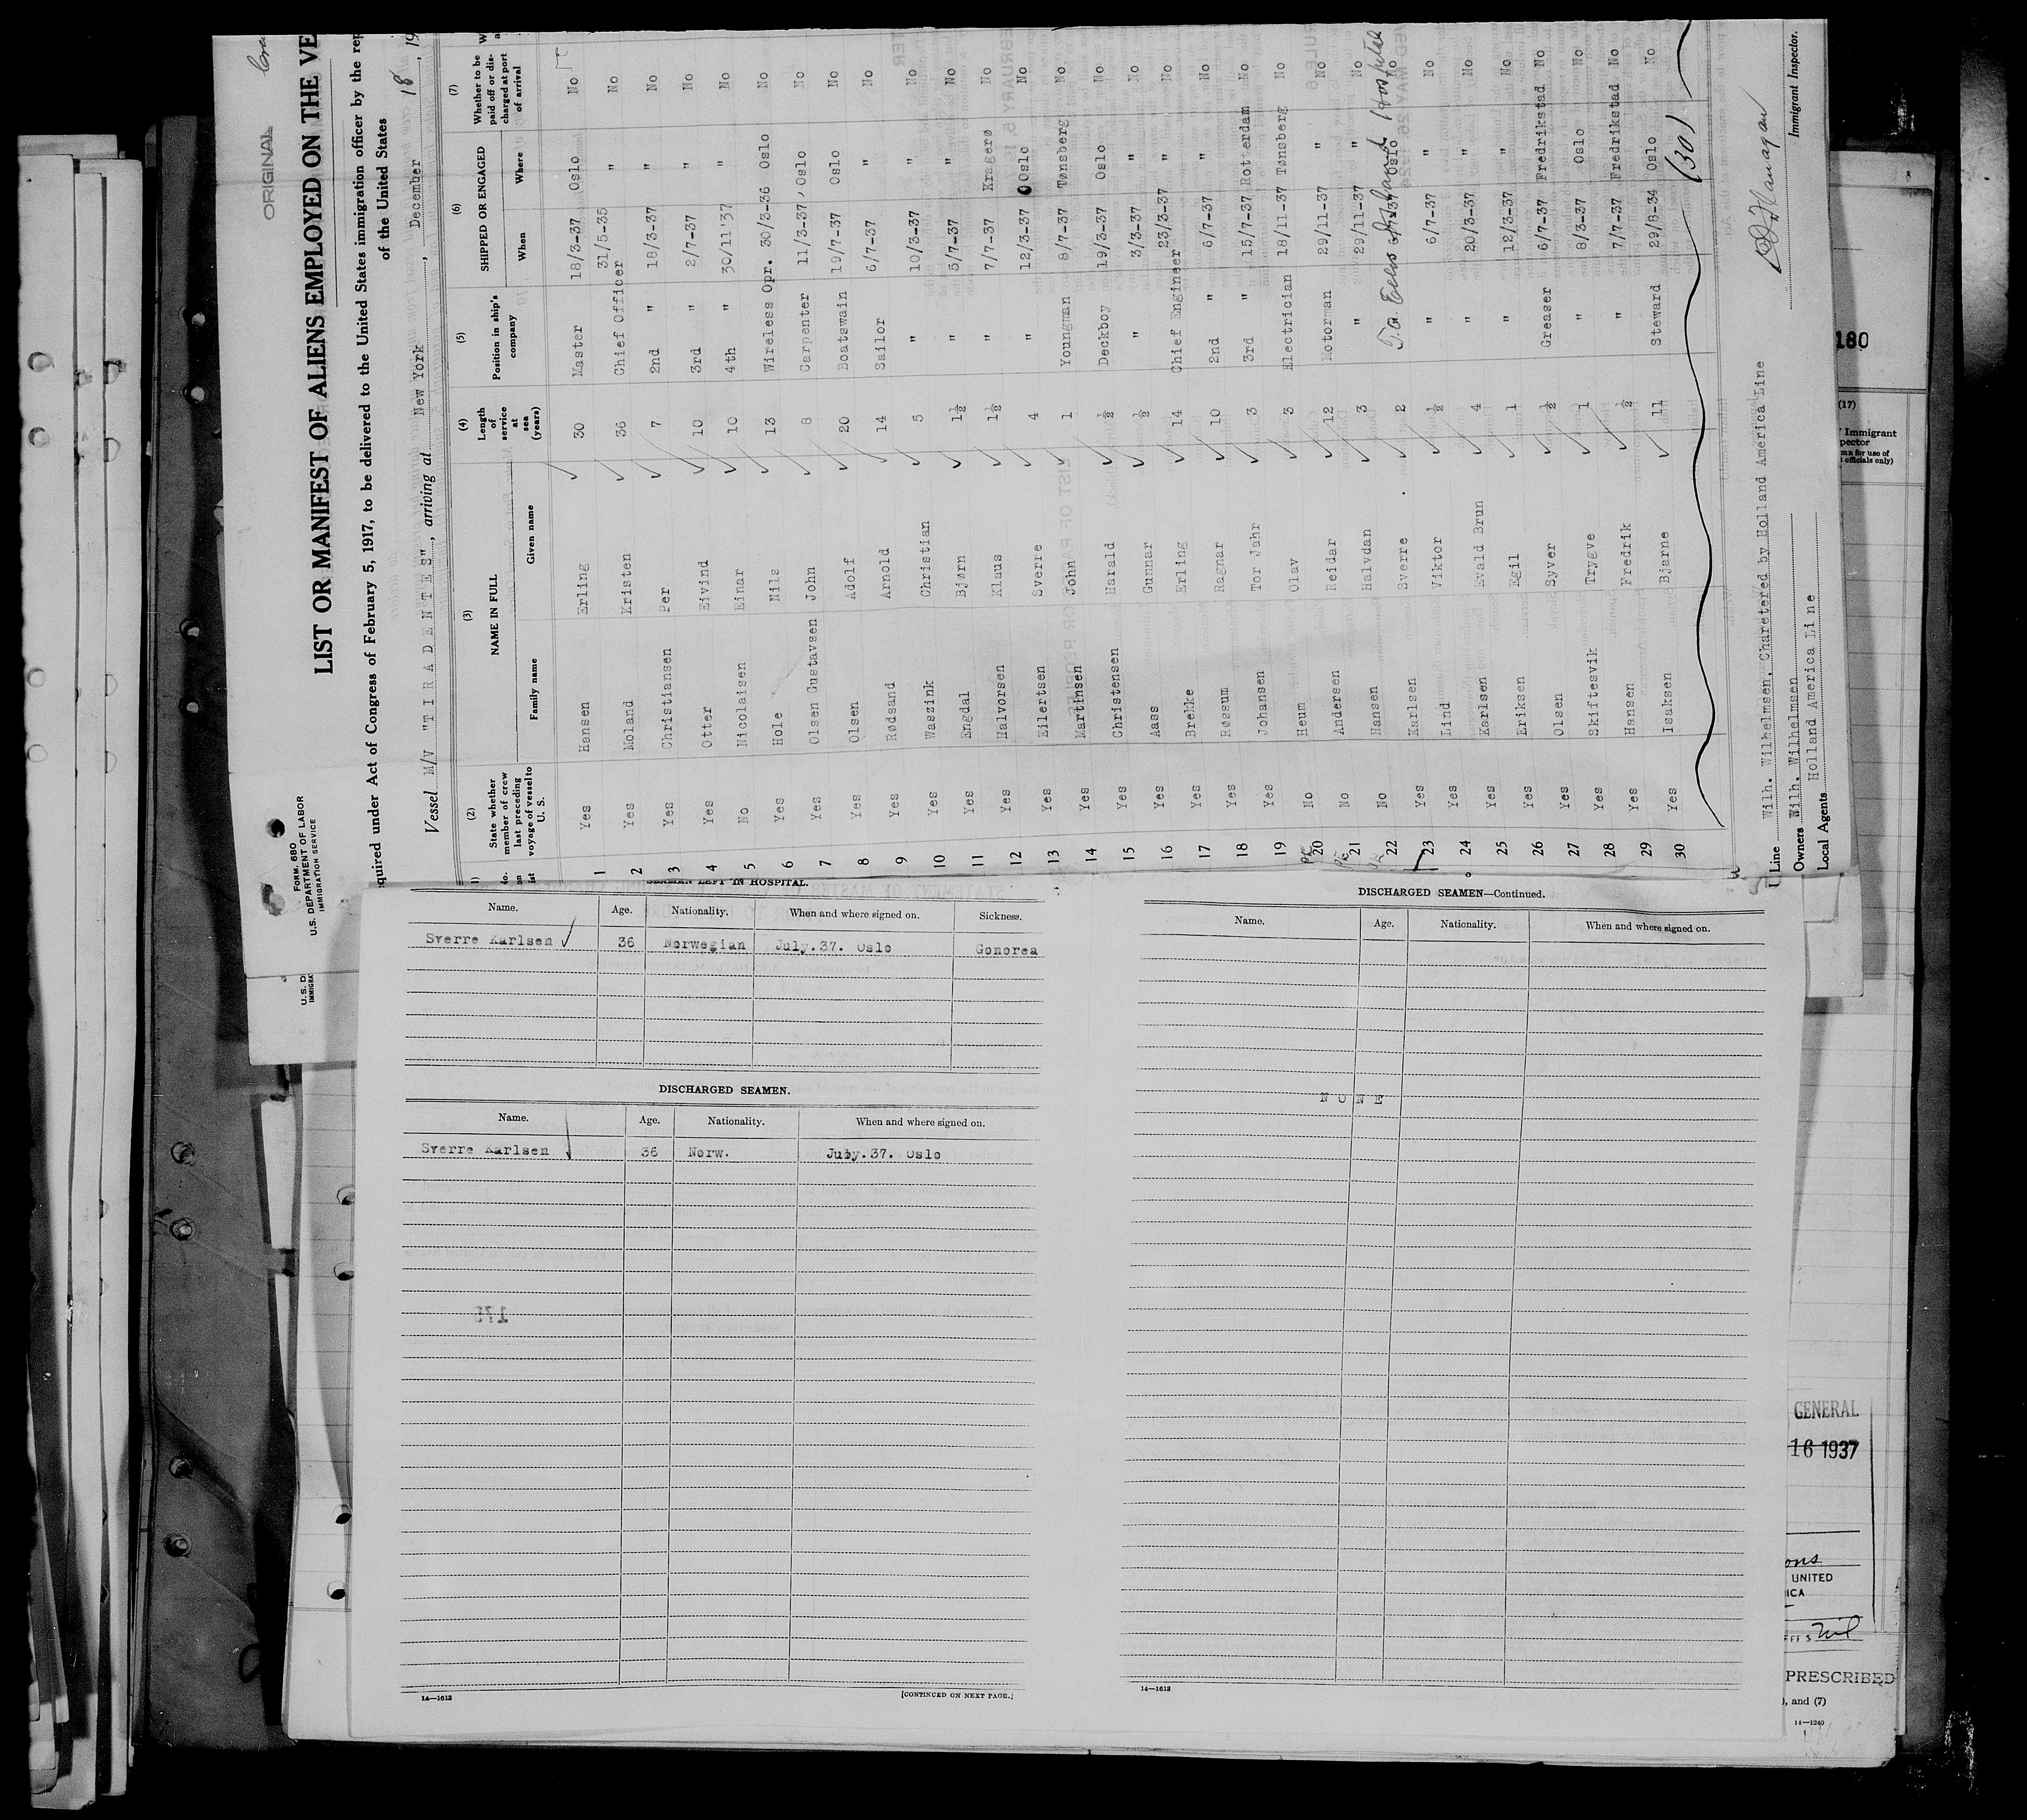 ORIGINAL
FORM 680
U.S. DEPARTMENT OF LABOR
IMMIGRATION SERVICE
LIST OR MANIFEST OF ALIENS EMPLOYED ON THE VE
quired under Act of Congress of February 5, 1917, to be delivered to the United States immigration officer by the rep
of the United States
Vessel M/V "TIRADENTES", arriving at New York, December 18, 19
(2) (3) (4) (5) (6) (7)
State whether member of crew last preceding voyage of vessel to U. S. NAME IN FULL Family name Given name Length of service at sea (years) Position in ship's company SHIPPED OR ENGAGED When Where Whether to be paid off or discharged at port of arrival
1 Yes Hansen Erling 30 Master 18/3-37 Oslo No
2 Yes Moland Kristen 36 Chief Officer 31/5-35 " No
3 Yes Christiansen Per 7 2nd " 18/3-37 " No
4 Yes Otter Eivind 10 3rd " 2/7-37 " No
5 No Nicolaisen Einar 10 4th " 30/11'37 " No
6 Yes Hole Nils 13 Wireless Opr. 30/3-36 Oslo No
7 Yes Olsen Gustavsen John 8 Carpenter 11/3-37 Oslo No
8 Yes Olsen Adolf 20 Boatswain 19/7-37 Oslo No
9 Yes Rødsand Arnold 14 Sailor 6/7-37 " No
10 Yes Waszink Christian 5 " 10/3-37 " No
11 Yes Engdal Bjørn 1½ " 5/7-37 " No
12 Yes Halvorsen Klaus 1½ " 7/7-37 Kragerø No
13 Yes Eilertsen Sverre 4 " 12/3-37 Oslo No
14 Yes Martinsen John 1 Youngman 8/7-37 Tønsberg No
15 Yes Christensen Harald ½ Deckboy 19/3-37 Oslo No
16 Yes Aass Gunnar ½ " 3/3-37 " No
17 Yes Brekke Erling 14 Chief Engineer 23/3-37 " No
18 Yes Røssum Ragnar 10 2nd " 6/7-37 " No
19 Yes Johansen Tor Jahr 3 3rd " 15/7-37 Rotterdam No
20 No Heum Olav 3 Electrician 18/11-37 Tønsberg No
21 No Andersen Reidar 12 Motorman 29/11-37 " No
22 No Hansen Halvdan 3 " 29/11-37 " No
23 Yes Karlsen Sverre 2 6/7-37 Oslo No
Ellis Island Hospital
24 Yes Lind Viktor ½ " 6/7-37 " No
25 Yes Karlsen Evald Brun 4 " 20/3-37 " No
26 Yes Eriksen Egil 1 " 12/3-37 " No
27 Yes Olsen Syver ½ Greaser 6/7-37 Fredrikstad No
28 Yes Skiftesvik Trygve 1 " 8/3-37 Oslo No
29 Yes Hansen Fredrik ½ " 7/7-37 Fredrikstad No
30 Yes Isaksen Bjarne 11 Steward 29/8-34 Oslo No
(30)
Line Wilh. Wilhelmsen, Charetered by Holland America Line
Owners Wilh. Wilhelmsen
Local Agents Holland America Line
Immigrant Inspector.
SEAMEN LEFT IN HOSPITAL.
Name. Age. Nationality. When and where signed on. Sickness.
Sverre Karlsen 36 Norwegian July.37. Oslo Gonorea
DISCHARGED SEAMEN.
Name. Age. Nationality. When and where signed on.
Sverre Karlsen 36 Norw. July.37. Oslo
14—1613 [CONTINUED ON NEXT PAGE.]
DISCHARGED SEAMEN—Continued.
Name. Age. Nationality. When and where signed on.
NONE
14—1613
180
(17)
Immigrant
officials only)
GENERAL
16 1937
UNITED
ICA
PRESCRIBED
), and (7)
14—1240